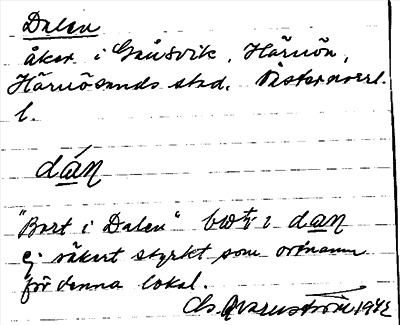 Dalen
åker i Gånsvik, Härnön,
Härnösands stad. Västernorrl.
l.
dán
"Bort i Dalen" i dan
ej säkert styrkt som ortnamn
för denna lokal.
1942